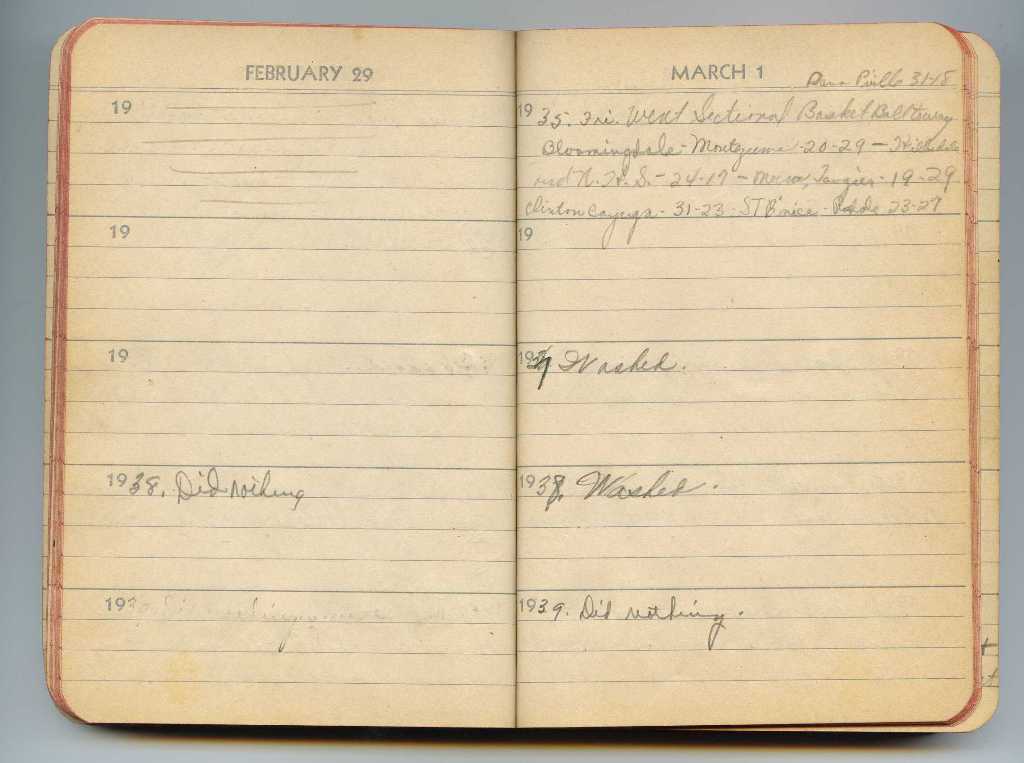 FEBRUARY 29
19
19
19
1938. Did nothing
19
MARCH 1
31-18
1935. Fri. Went Sectional Basket Ball
Bloomingdale - Montezuma - 20-29 -
N. H. S. - 24-17 - Mecca, Tangier - 19-29
Clinton Cayuga - 31-23 - ST B'nice - 23-27
19
1937 Washed.
1938. Washed.
1939. Did nothing.